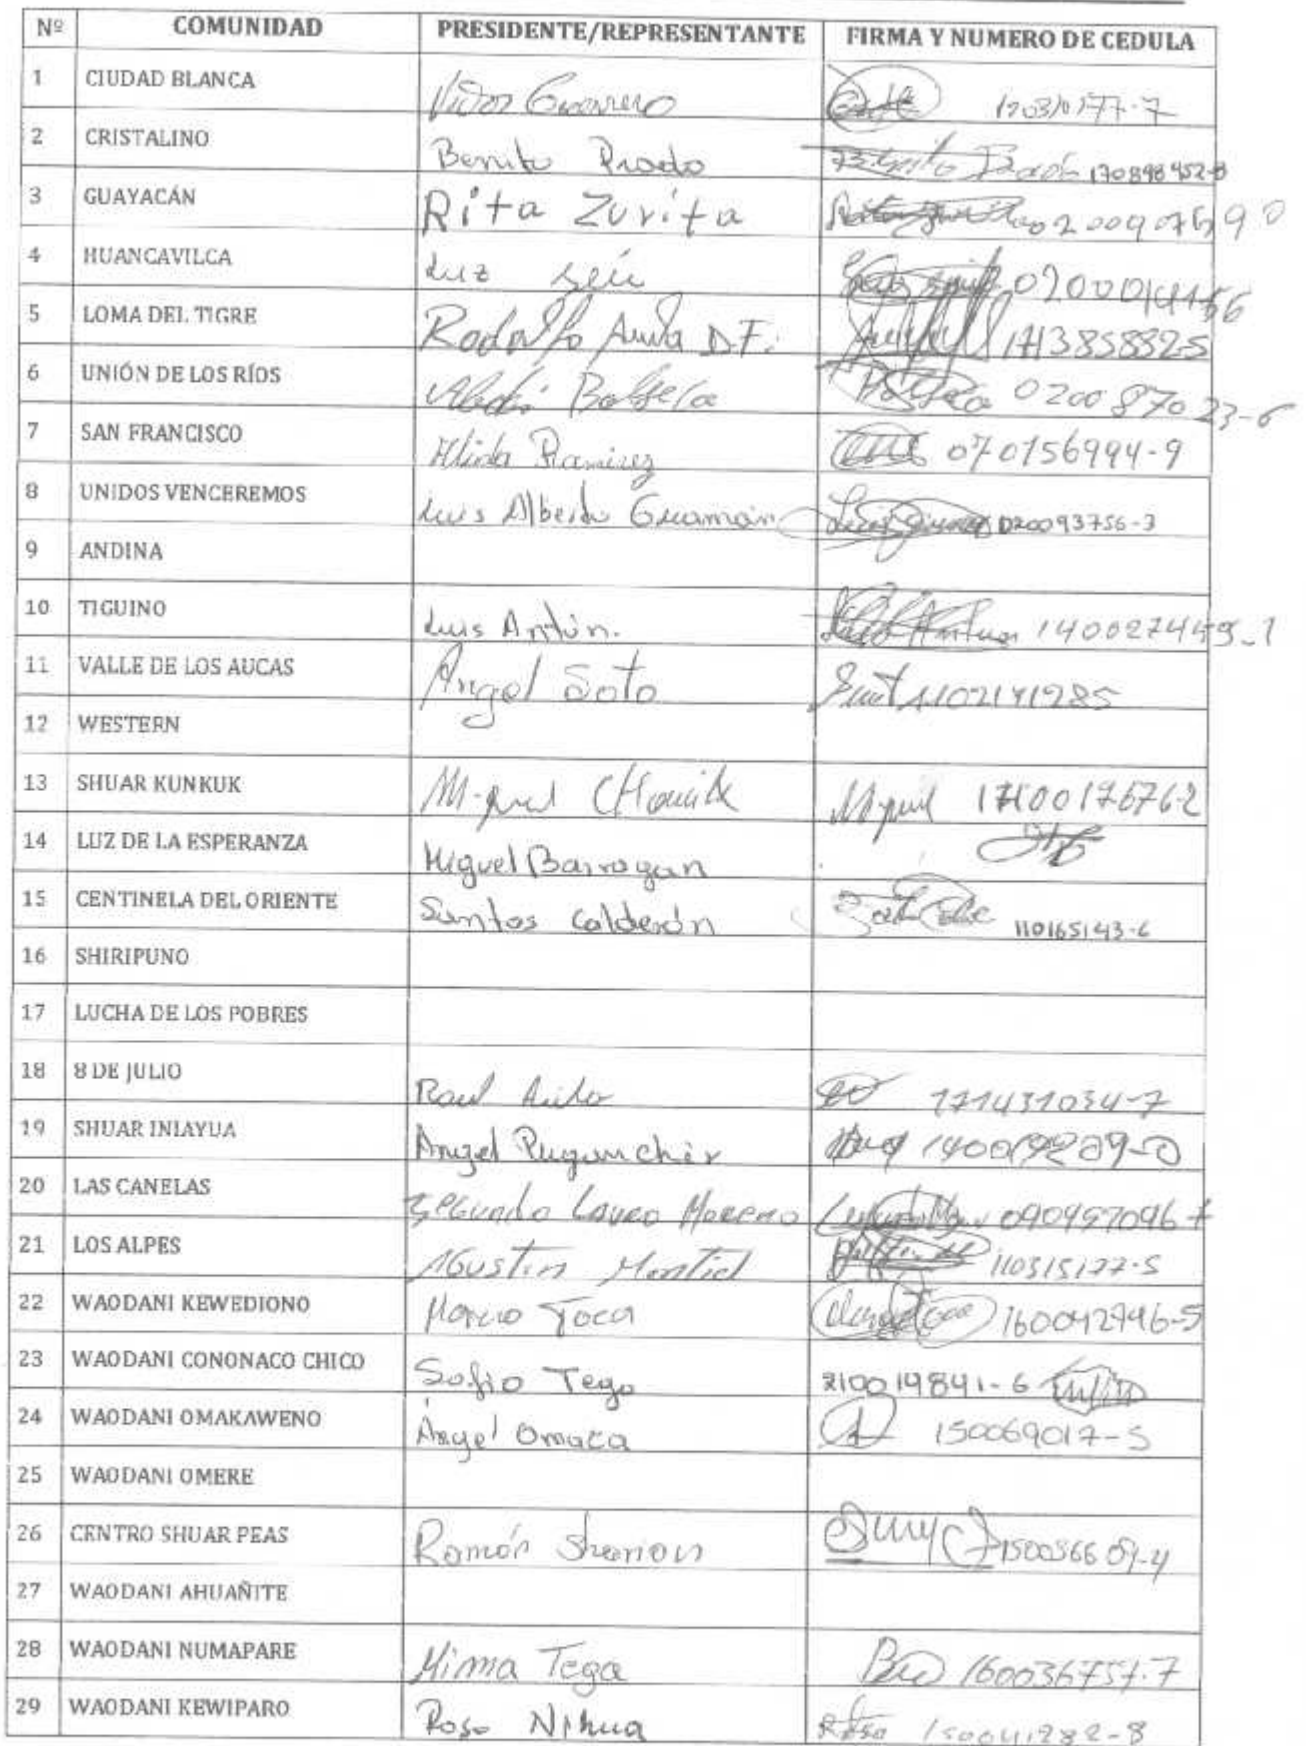 Nº COMUNIDAD PRESIDENTE/REPRESENTANTE FIRMA Y NUMERO DE CEDULA
1 CIUDAD BLANCA Victor Guerrero
2 CRISTALINO Benito Prado 170898452-8
3 GUAYACÁN Rita Zurita
4 HUANCAVILCA Luz
5 LOMA DEL TIGRE Rodolfo D.F. 171385882-5
6 UNIÓN DE LOS RÍOS 020087023-6
7 SAN FRANCISCO Ramirez 070156994-9
8 UNIDOS VENCEREMOS Luis Alberto Guaman 020093756-3
9 ANDINA
10 TIGUINO Luis Antún. 140027449-1
11 VALLE DE LOS AUCAS Angel Soto 1102141285
12 WESTERN
13 SHUAR KUNKUK Miguel
14 LUZ DE LA ESPERANZA Miguel Barragan
15 CENTINELA DEL ORIENTE Santos Calderón 110165143-6
16 SHIRIPUNO
17 LUCHA DE LOS POBRES
18 8 DE JULIO Raul 171431034-7
19 SHUAR INIAYUA Angel Puganchir
20 LAS CANELAS Segundo Lauro Moreno
21 LOS ALPES Agustin Montiel 110315177-5
22 WAODANI KEWEDIONO Toca 160042796-5
23 WAODANI CONONACO CHICO Sofio Tega 210019841-6
24 WAODANI OMAKAWENO Ángel Omaca 150069017-5
25 WAODANI OMERE
26 CENTRO SHUAR PEAS Ramón
27 WAODANI AHUAÑITE
28 WAODANI NUMAPARE Mima Tega 160036757-7
29 WAODANI KEWIPARO Rosa Nihua Rosa 150041282-8